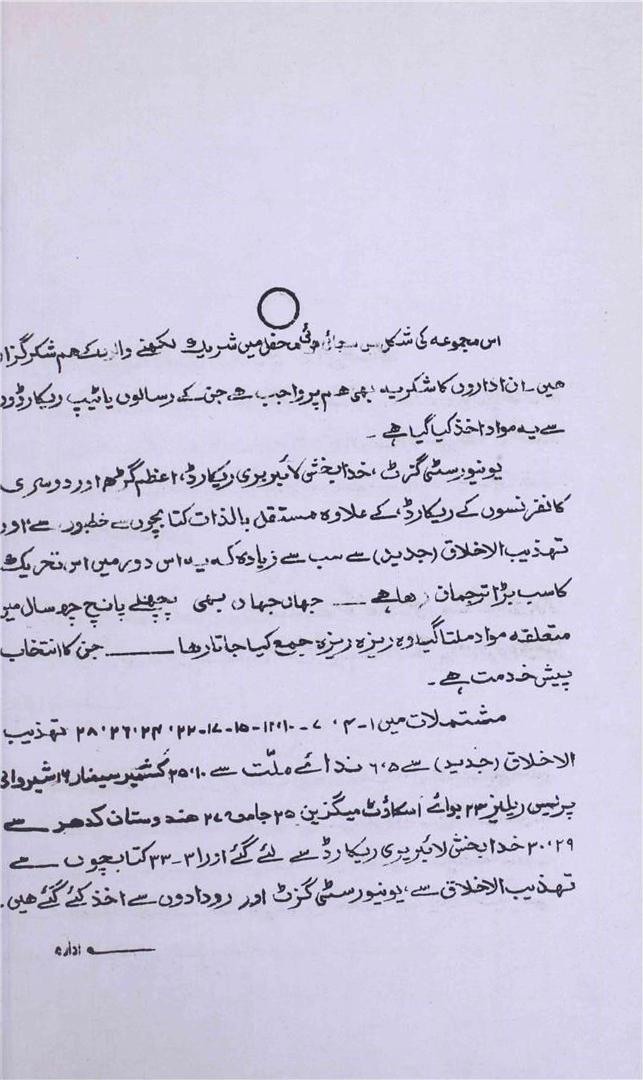 اس مجموعہ کی شکل میں سجائی ہوئی محفل میں شریک لکھنے والوں کے ہم شکر گزار
ہیں۔ ان اداروں کا شکریہ بھی ہم پر واجب ہے جن کے رسالوں یا ٹیپ ریکارڈوں
سے یہ مواد اخذ کیا گیا ہے۔
یونیورسٹی گزٹ، خدا بخش لائبریری ریکارڈ، اعظم گڑھ اور دوسری
کانفرنسوں کے ریکارڈ، کے علاوہ مستقل بالذات کتابچوں سے خطبوں سے اور
تہذیب الاخلاق (جدید) سے سب سے زیادہ کہ یہ اس دور میں اس تحریک
کا سب بڑا ترجمان رہا ہے — جہاں جہاں بھی پچھلے پانچ چھ سال میں
متعلقہ مواد ملتا گیا وہ ریزہ ریزہ جمع کیا جاتا رہا —— جن کا انتخاب
پیش خدمت ہے۔
مشتملات میں ۱-۴، ۷-۱۰، ۱۲-۱۵-۱۷-۲۲، ۲۴، ۲۶، ۲۸ تہذیب
الاخلاق (جدید) سے ۶،۵ ندائے ملّت سے ۲۵،۱۰ کشمیر سیمنار ۱۶ شیروانی
پریس ریلیز ۲۳ بوائے اسکاؤٹ میگزین ۲۵ جامعہ ۲۷ ہندوستان کدھر سے
۳۰،۲۹ خدا بخش لائبریری ریکارڈ سے لئے گئے اور ۳۱-۳۳ کتابچوں سے
تہذیب الاخلاق سے، یونیورسٹی گزٹ اور رودادوں سے اخذ کئے گئے ہیں۔
—— ادارہ